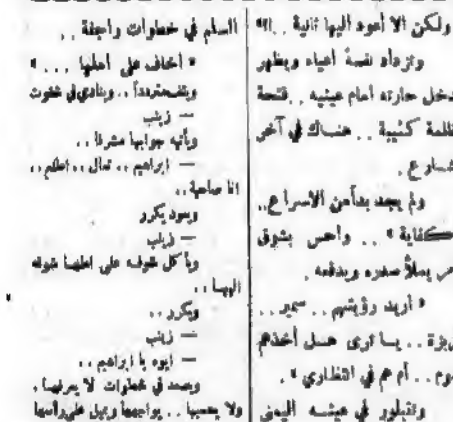 ولكن الا أعود اليها ثانية ..!!»
وتزداد نغمة أعياء ويظهر
مدخل حارته أمام عينيه .. فتحة
مظلمة كئيبة .. هنساك في آخر
الشارع .
ولم يجد بدأ من الاسراع ..
كفاية » .. واحس بشوق
يملأ صدره ويدفعه .
« أريد رؤيتهم .. سمير ..
يسا ترى هسل أخذهم
النوم .. أم هم في انتظاري » .
وتتبلور في عينسه اليمنى
السلم في خطوات واجفة ..
« أخاف على أهلها ... »
ويقف مترددا .. وينادي في خفوت
— زينب
ويأتيه جوابها مشرقا ..
— ابراهيم .. تعال .. اطلع ..
انا صاحية ..
ويعود يكرر
— زينب
ويأكل خوفه على اهلها خوفه
اليها ..
ويكرر ..
— زينب
— ايوه يا ابراهيم ..
ويصعد في خطوات لا يعرفها .
ولا يحسها .. يواجهها ويميل على رأسها